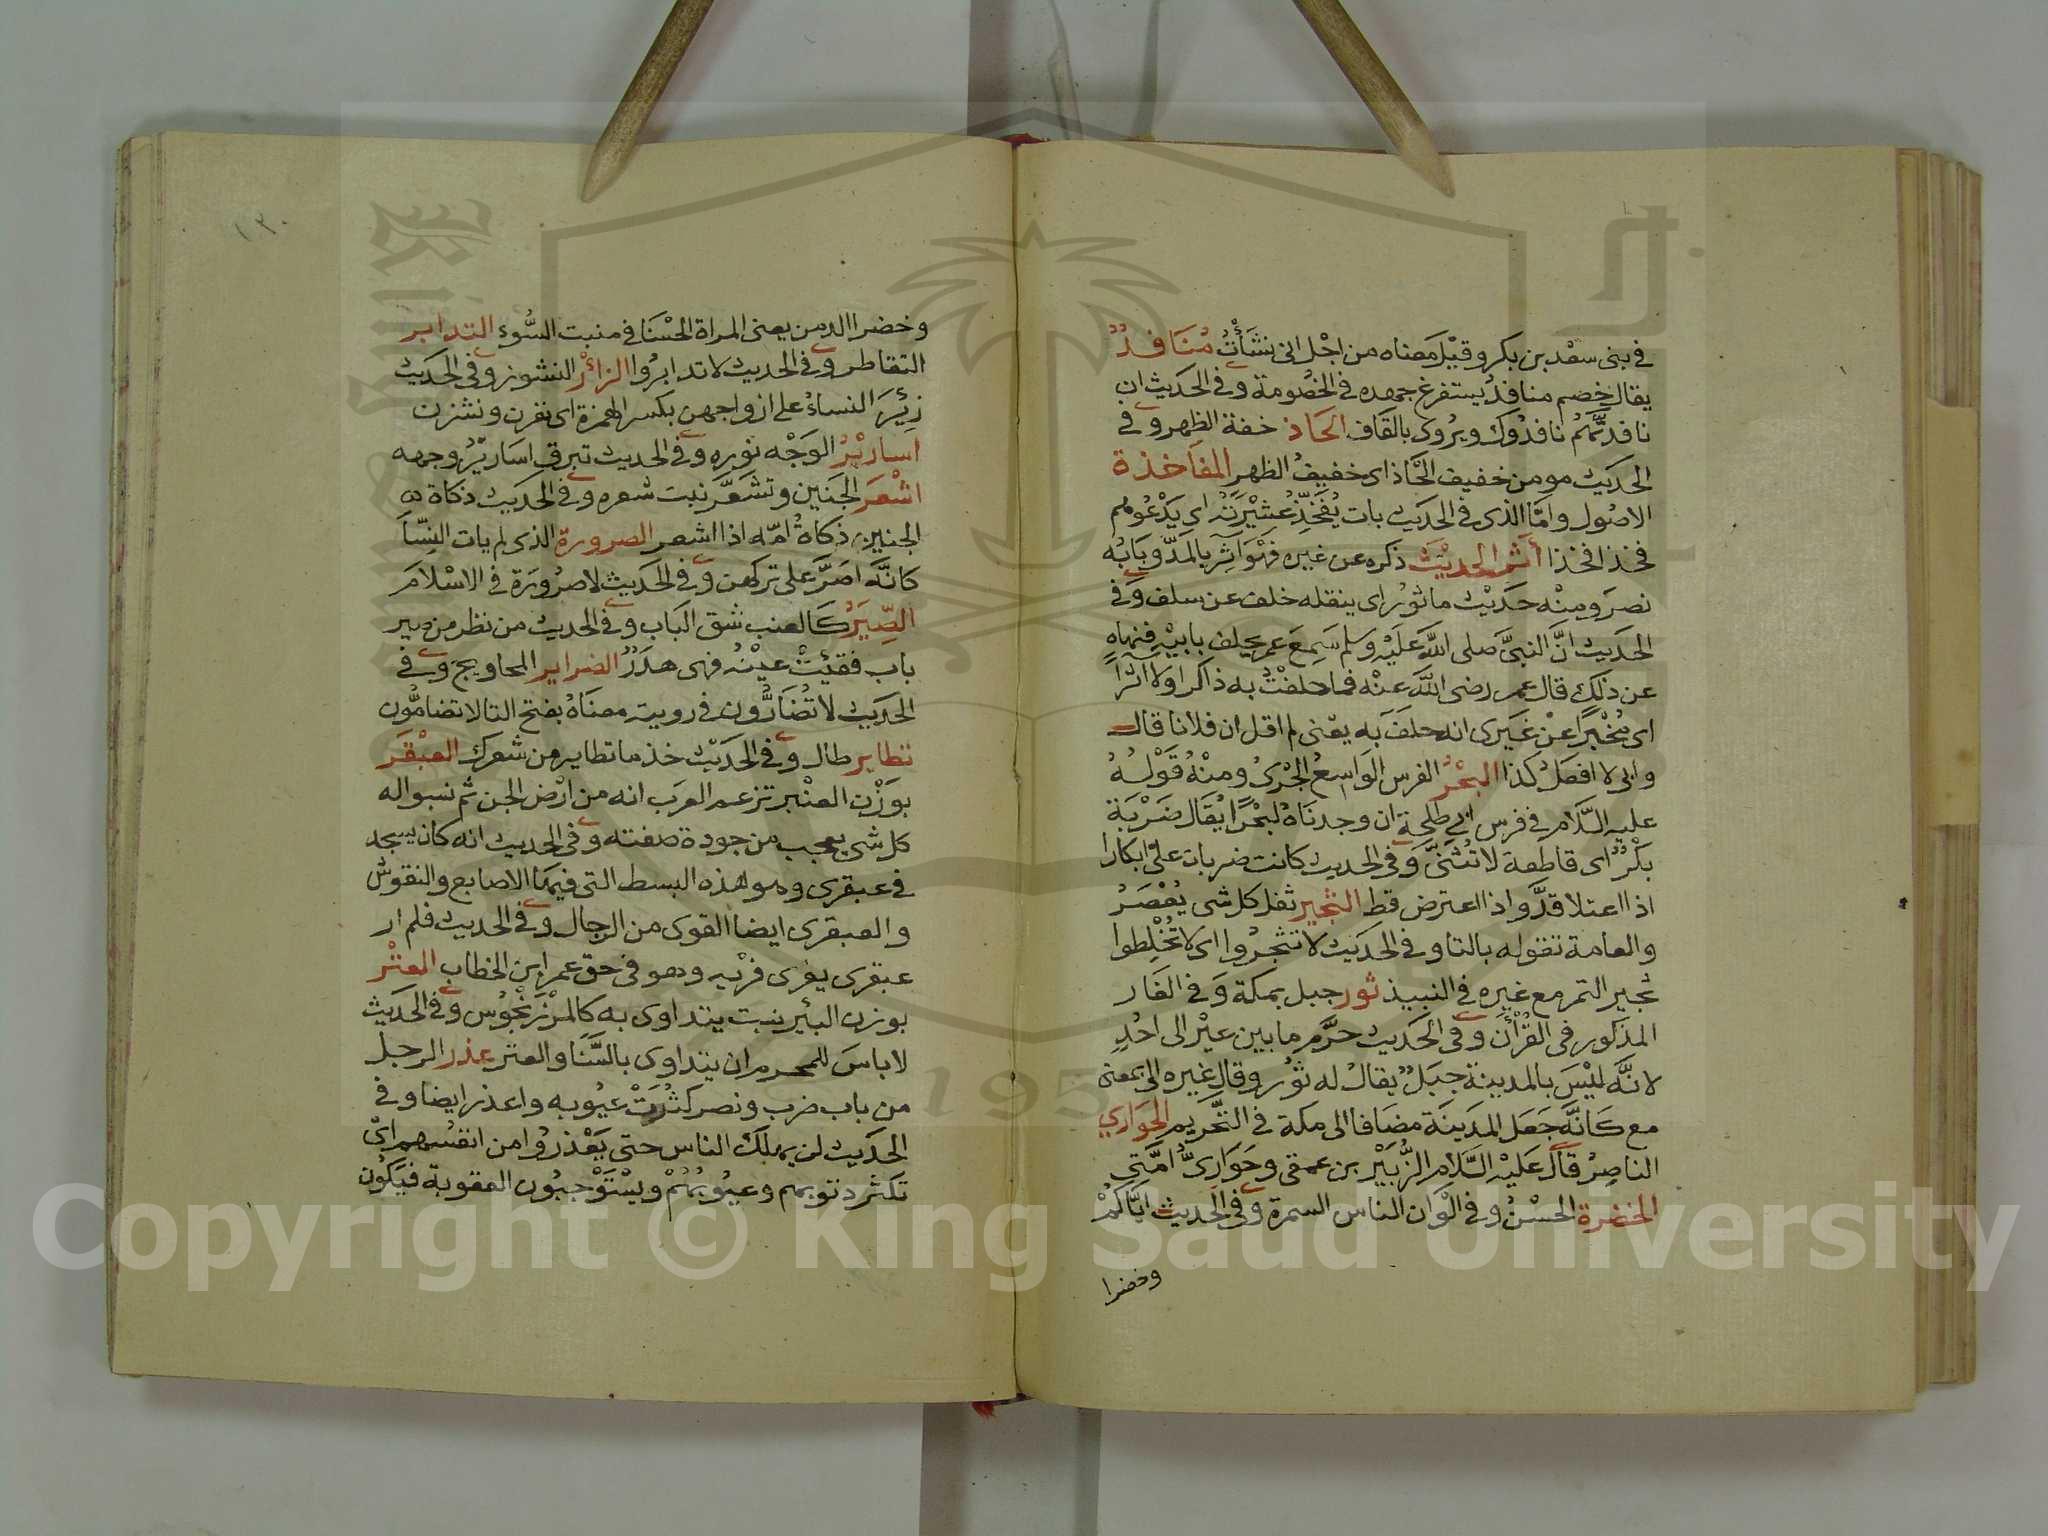 في بنى سعد بن بكر وقيل معناه من اجل انى نشأت منافد
يقال خصم منافد يستفرغ جهده فى الخصومة وفى الحديث ان
نافدتهم نافدوك ويروى بالقاف الحاذ خفة الظهر وفى
الحديث مومن خفيف الحاذ اى خفيف الظهر المفاخذة
الاصول واما الذى فى الحديث بات يفخذ عشيرته اى يدعوهم
فخذا فخذا أثر الحديث ذكره عن غيره فهو اثر بالمد وبابه
نصر ومنه حديث ماثور اى ينقله خلف عن سلف وفى
الحديث ان النبى صلى الله عليه وسلم سمع عمر يحلف بابيه فنهاه
عن ذلك قال عمر رضى الله عنه فما حلفت به ذاكرا ولا اثرا
اى مخبرا عن غيرى انه حلف به يعنى لم اقل ان فلانا قال
وابى لا افعل كذا البحر الفرس الواسع الجرى ومنه قوله
عليه السلام فى فرس ابى طلحة ان وجدناه لبحرا يقال ضربة
بكر اى قاطعة لا تثنى وفى الحديث كانت ضربات على ابكارا
اذا اعتلا قد واذا اعترض قط الثجير ثفل كل شى يعصر
والعامة تقوله بالتا وفى الحديث لا تثجروا اى لا تخلطوا
ثجير التمر مع غيره فى النبيذ ثور جبل بمكة وفى الغار
المذكور فى القرأن وفى الحديث حرم ما بين عير الى احد
لانه ليس بالمدينة جبل يقال له ثور وقال غيره الى بمعنى
مع كانه جعل المدينة مضافا الى مكة فى التحريم الحوارى
الناصر قال عليه السلام الزبير بن عمتى وحوارى امتى
الخضرة الحسن وفى الوان الناس السمرة وفى الحديث اياكم
وخضرا
١٣٠
وخضرا الدمن يعنى المراة الحسنا فى منبت السوء التدابر
التقاطر وفى الحديث لا تدابروا الزائر النشوز وفى الحديث
زئر النساء على ازواجهن بكسر الهمزة اى نفرن ونشزن
اسارير الوجه نوره وفى الحديث تبرق اسارير وجهه
اشعر الجنين وتشعر نبت شعره وفى الحديث ذكاة
الجنين ذكاة امه اذا اشعر الصرورة الذى لم يات النسا
كانه اصر على تركهن وفى الحديث لا صرورة فى الاسلام
الصير كالعنب شق الباب وفى الحديث من نظر من صير
باب ففقئت عينه فهى هدر الضراير المحاويج وفى
الحديث لا تضارون فى رويته معناه بفتح التا لا تضامون
تطاير طال وفى الحديث خذ ما تطاير من شعرك العبقر
بوزن العنبر تزعم العرب انه من ارض الجن ثم نسبوا له
كل شى يعجب من جودة صفته وفى الحديث انه كان يسجد
فى عبقرى وهو هذه البسط التى فيها الاصابع والنقوش
والعبقرى ايضا القوى من الرجال وفى الحديث فلم ار
عبقرى يفرى فريه وهو فى حق عمر ابن الخطاب العتر
بوزن البئر نبت يتداوى به كالمرزنجوس وفى الحديث
لا باس للمحرم ان يتداوى بالسنا والعتر عذر الرجل
من باب ضرب ونصر كثرت عيوبه واعذر ايضا وفى
الحديث لن يهلك الناس حتى يعذروا من انفسهم اى
تكثر ذنوبهم وعيوبهم ويستوجبون العقوبة فيكون
Copyright © King Saud University
195